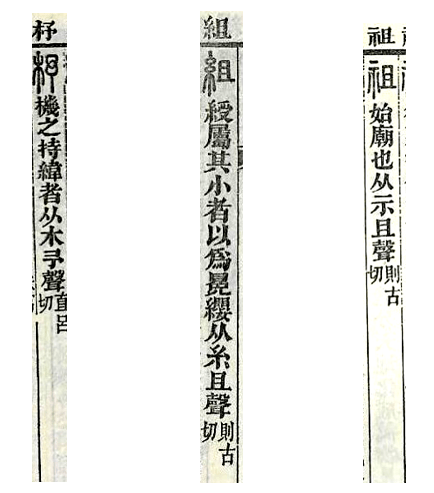 祖
祖 始廟也从示且聲則古切
組
組 綬屬其小者以爲冕纓从糸且聲則古切
杼
杼 機之持緯者从木予聲直呂切